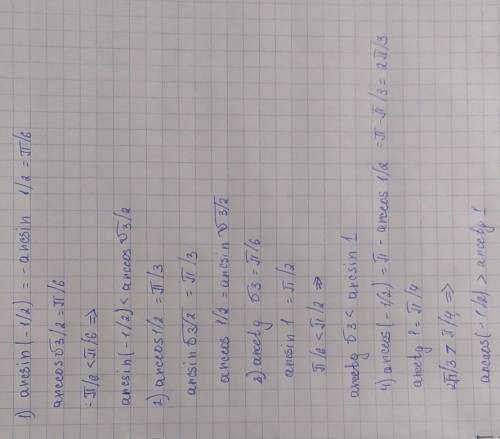 1) arcsin (-1/2) = - arcsin 1/2 = π/6
arccos √3/2 = π/6
-π/2 < π/6 ⇒
arcsin (-1/2) < arccos √3/2
2) arccos 1/2 = π/3
arcsin √3/2 = π/3
arccos 1/2 = arcsin √3/2
3) arcctg √3 = π/6
arcsin 1 = π/2
π/2 < π/2 ⇒
arcctg √3 < arcsin 1
4) arccos (-1/2) = π - arccos 1/2 = π - π/3 = 2π/3
arcctg 1 = π/4
2π/3 > π/4 ⇒
arccos (-1/2) > arcctg 1